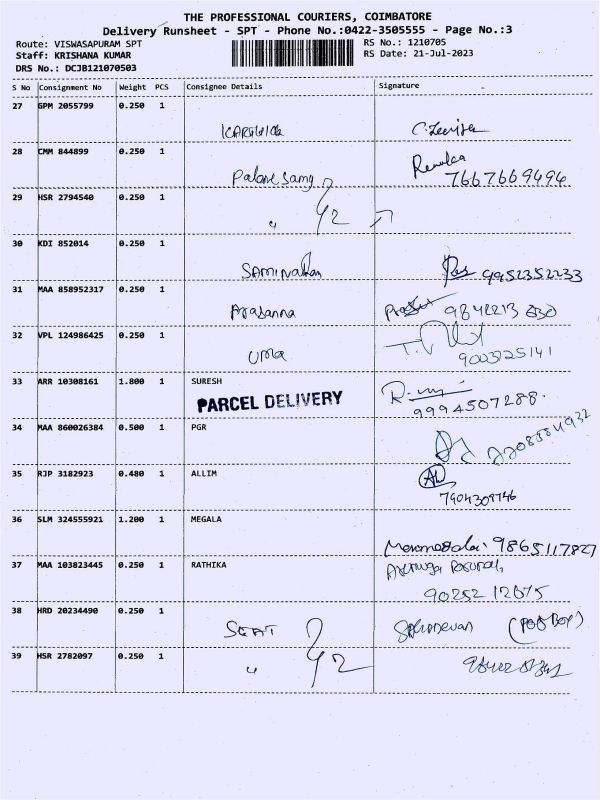 THE PROFESSIONAL COURIERS, COIMBATORE
Delivery Runsheet - SPT - Phone No.:0422-3505555 - Page No.:3
Route: VISWASAPURAM SPT RS No.: 1210705
Staff: KRISHANA KUMAR RS Date: 21-Jul-2023
DRS No.: DCJB121070503
S No Consignment No Weight PCS Consignee Details Signature
27 GPM 2055799 0.250 1
28 CMM 844899 0.250 1
Palani Samy Renuka 7667669494
29 HSR 2794540 0.250 1
" 2
30 KDI 852014 0.250 1
SAMINathan 9952352233
31 MAA 858952317 0.250 1
Prasanna 9842213830
32 VPL 124986425 0.250 1
Uma 9003125141
33 ARR 10308161 1.800 1 SURESH
PARCEL DELIVERY 9994507288.
34 MAA 860026384 0.500 1 PGR
35 RJP 3182923 0.480 1 ALLIM
7904309746
36 SLM 324555921 1.200 1 MEGALA
9865117827
37 MAA 103823445 0.250 1 RATHIKA
90252 12675
38 HRD 20234490 0.250 1
39 HSR 2782097 0.250 1
" 2